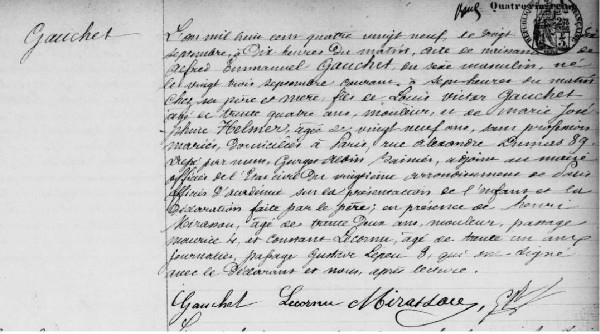 Gauchet
Quatre
L'an mil huit cent quatre vingt neuf, le vingt
septembre, à Dix heures Du matin, acte de naissance de
Alfred Emmanuel Gauchet, du sexe masculin, né
le vingt trois septembre courant, à sept heures du matin
chez ses père et mère, fils de Louis Victor Gauchet
âgé de trente quatre ans, mouleur, et de Marie José
phine Helmer, âgée de vingt neuf ans, sans profession
mariés, domiciliés à Paris, rue Alexandre Dumas 89.
Dressé par nous, Georges adjoint au maire
officier de l'Etat civil Du vingtième arrondissement de Paris
officier D'académie sur la présentation de l'enfant et la
Déclaration faite par le père; en présence de henri
Mirassou, âgé de trente Deux ans, mouleur, passage
maurice 4, et Constant Lecornu, âgé de trente un ans
journalier, passage Gustave Lepeu 8, qui ont signé
avec le Déclarant et nous, après lecture.
Gauchet Lecornu Mirassou